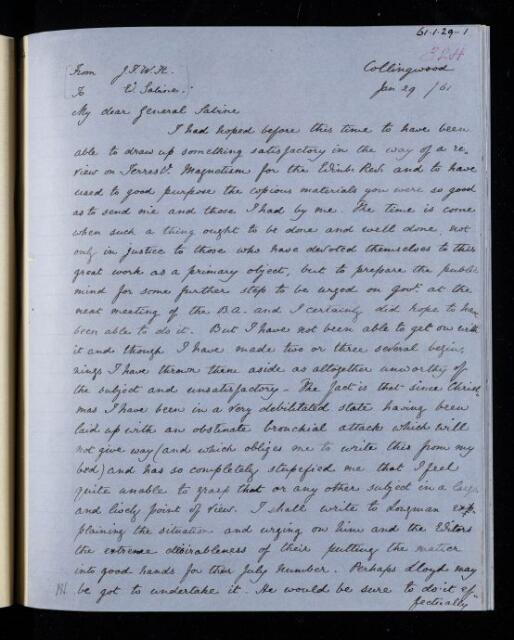 61.1.29-1
From J.F.W.H. Collingwood
To E. Sabine. Jan 29 /61
My dear General Sabine
I had hoped before this time to have been
able to draw up something satisfactory in the way of a re-
view on Terrestl. Magnetism for the Edinb. Rev. and to have
used to good purpose the copious materials you were so good
as to send me and those I had by me. The time is come
when such a thing ought to be done and well done, not
only in justice to those who have devoted themselves to this
great work as a primary object, but to prepare the public
mind for some further step to be urged on govt. at the
next meeting of the B.A. and I certainly did hope to have
been able to do it. But I have not been able to get on with
it and though I have made two or three several begin-
nings I have thrown them aside as altogether unworthy of
the subject and unsatisfactory - The fact is that since Christ-
mas I have been in a very debilitated state having been
laid up with an obstinate bronchial attack which will
not give way (and which obliges me to write this from my
bed) and has so completely stupefied me that I feel
quite unable to grasp that or any other subject in a large
and lively point of view. I shall write to Longman ex-
plaining the situation and urging on him and the Editors
the extreme desirableness of their putting the matter
into good hands for their July Number. Perhaps Lloyd may
be got to undertake it. He would be sure to do it ef-
fectually